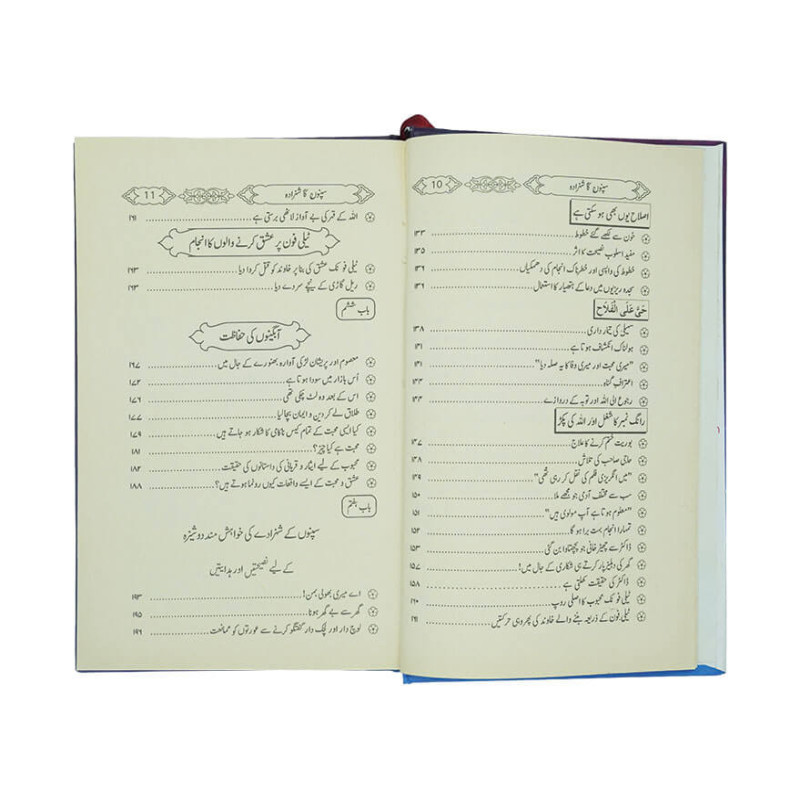 سپنوں کا شہزادہ 10
اصلاح یوں بھی ہو سکتی ہے
خون سے لکھے گئے خطوط ۱۳۳
مفید اسلوب نصیحت کا اثر ۱۳۵
خطوط کی واپسی اور خطرناک انجام کی دھمکیاں ۱۳۹
سجدہ ریزیوں میں دعا کے ہتھیار کا استعمال ۱۳۹
حَیَّ عَلَی الْفَلَاح
سہیلی کی تیمار داری ۱۳۸
ہولناک انکشاف ہوتا ہے ۱۴۱
"میری محبت اور میری وفا کا یہ صلہ دیا" ۱۴۱
اعترافِ گناہ ۱۴۳
رجوع الی اللہ اور توبہ کے دروازے ۱۴۴
رانگ نمبر کا شغل اور اللہ کی پکڑ
بوریت ختم کرنے کا علاج ۱۴۷
حاجی صاحب کی تلاش ۱۴۸
"میں انگریزی فلم کی نقل کر رہی تھی" ۱۴۹
سب سے مختلف آدمی جو مجھے ملا ۱۵۰
"معلوم ہوتا ہے آپ مولوی ہیں" ۱۵۱
تمہارا انجام بہت برا ہو گا ۱۵۲
ڈاکٹر سے چھیڑ خانی جو پچھتاوا بن گئی ۱۵۳
گھر کی دہلیز پار کرتے ہی شکاری کے جال میں! ۱۵۷
ڈاکٹر کی حقیقت کھلتی ہے ۱۵۸
ٹیلی فونک محبوب کا اصلی روپ ۱۶۰
ٹیلی فون کے ذریعہ بننے والے خاوند کی پھر وہی حرکتیں ۱۶۱
سپنوں کا شہزادہ 11
اللہ کے قہر کی بے آواز لاٹھی برستی ہے ۱۶۱
ٹیلی فون پر عشق کرنے والوں کا انجام
ٹیلی فونک عشق کی بنا پر خاوند کو قتل کروا دیا ۱۶۳
ریل گاڑی کے نیچے سر دے دیا ۱۶۳
باب ششم
آبگینوں کی حفاظت
معصوم اور پریشان لڑکی آوارہ بھنورے کے جال میں ۱۶۷
اُس بازار میں سودا ہوتا ہے ۱۷۴
اس کے بعد وہ لٹ چکی تھی ۱۷۶
طلاق لے کر دین و ایمان بچا لیا ۱۷۷
کیا ایسی محبت کے تمام کیس ناکامی کا شکار ہو جاتے ہیں ۱۷۹
محبت ہے کیا چیز؟ ۱۸۱
محبوب کے لیے ایثار و قربانی کی داستانوں کی حقیقت ۱۸۲
عشق و محبت کے ایسے واقعات کیوں رونما ہوتے ہیں؟ ۱۸۸
باب ہفتم
سپنوں کے شہزادے کی خواہش مند دوشیزہ
کے لیے نصیحتیں اور ہدایتیں
اے میری بھولی بہن! ۱۹۳
گھر سے بے گھر ہونا ۱۹۵
لوچ دار اور لچک دار گفتگو کرنے سے عورتوں کو ممانعت ۱۹۹